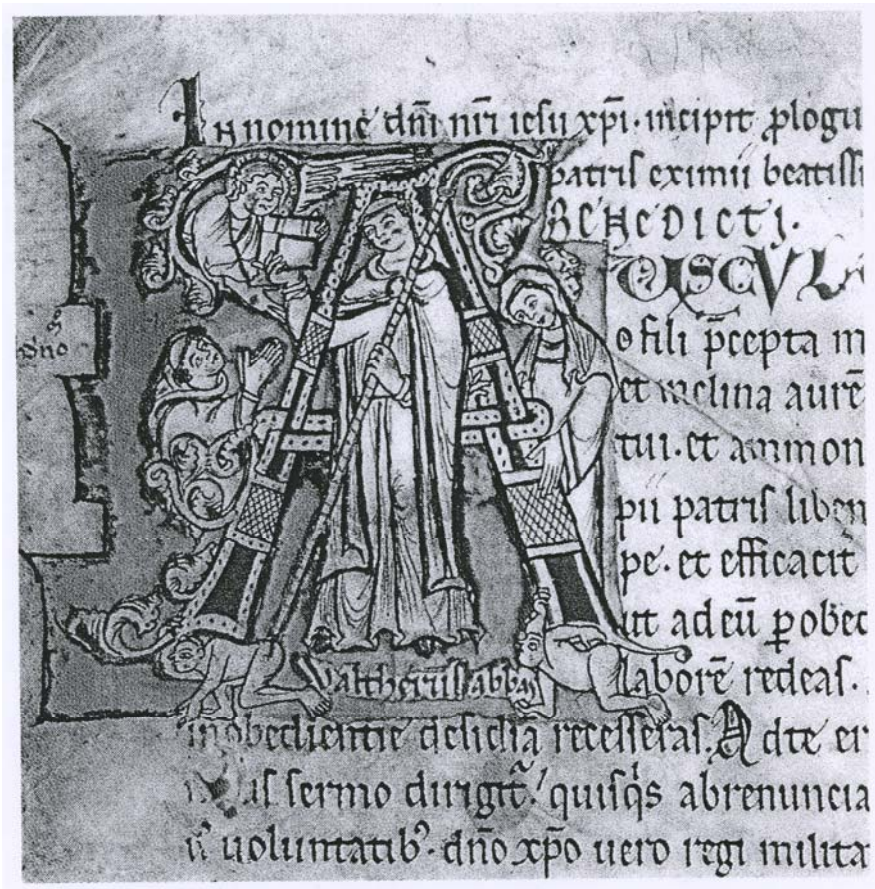 In nomine dñi nr̄i iesu xp̄i. incipit ꝓlogu
patris eximii beatissi
BENEDICTI.
AUSCVLTA
o fili p̄cepta m
et inclina aurē
tui. et ammon
pii patris liben
pe. et efficacit
ut ad eū ꝑ obec
laborē redeas.
Waltherus abbas
inobedientie desidia recesseras. Ad te er
sermo dirigit᷑. quisq̇s abrenuncia
uoluntatib᷒. dño xp̄o uero regi milita